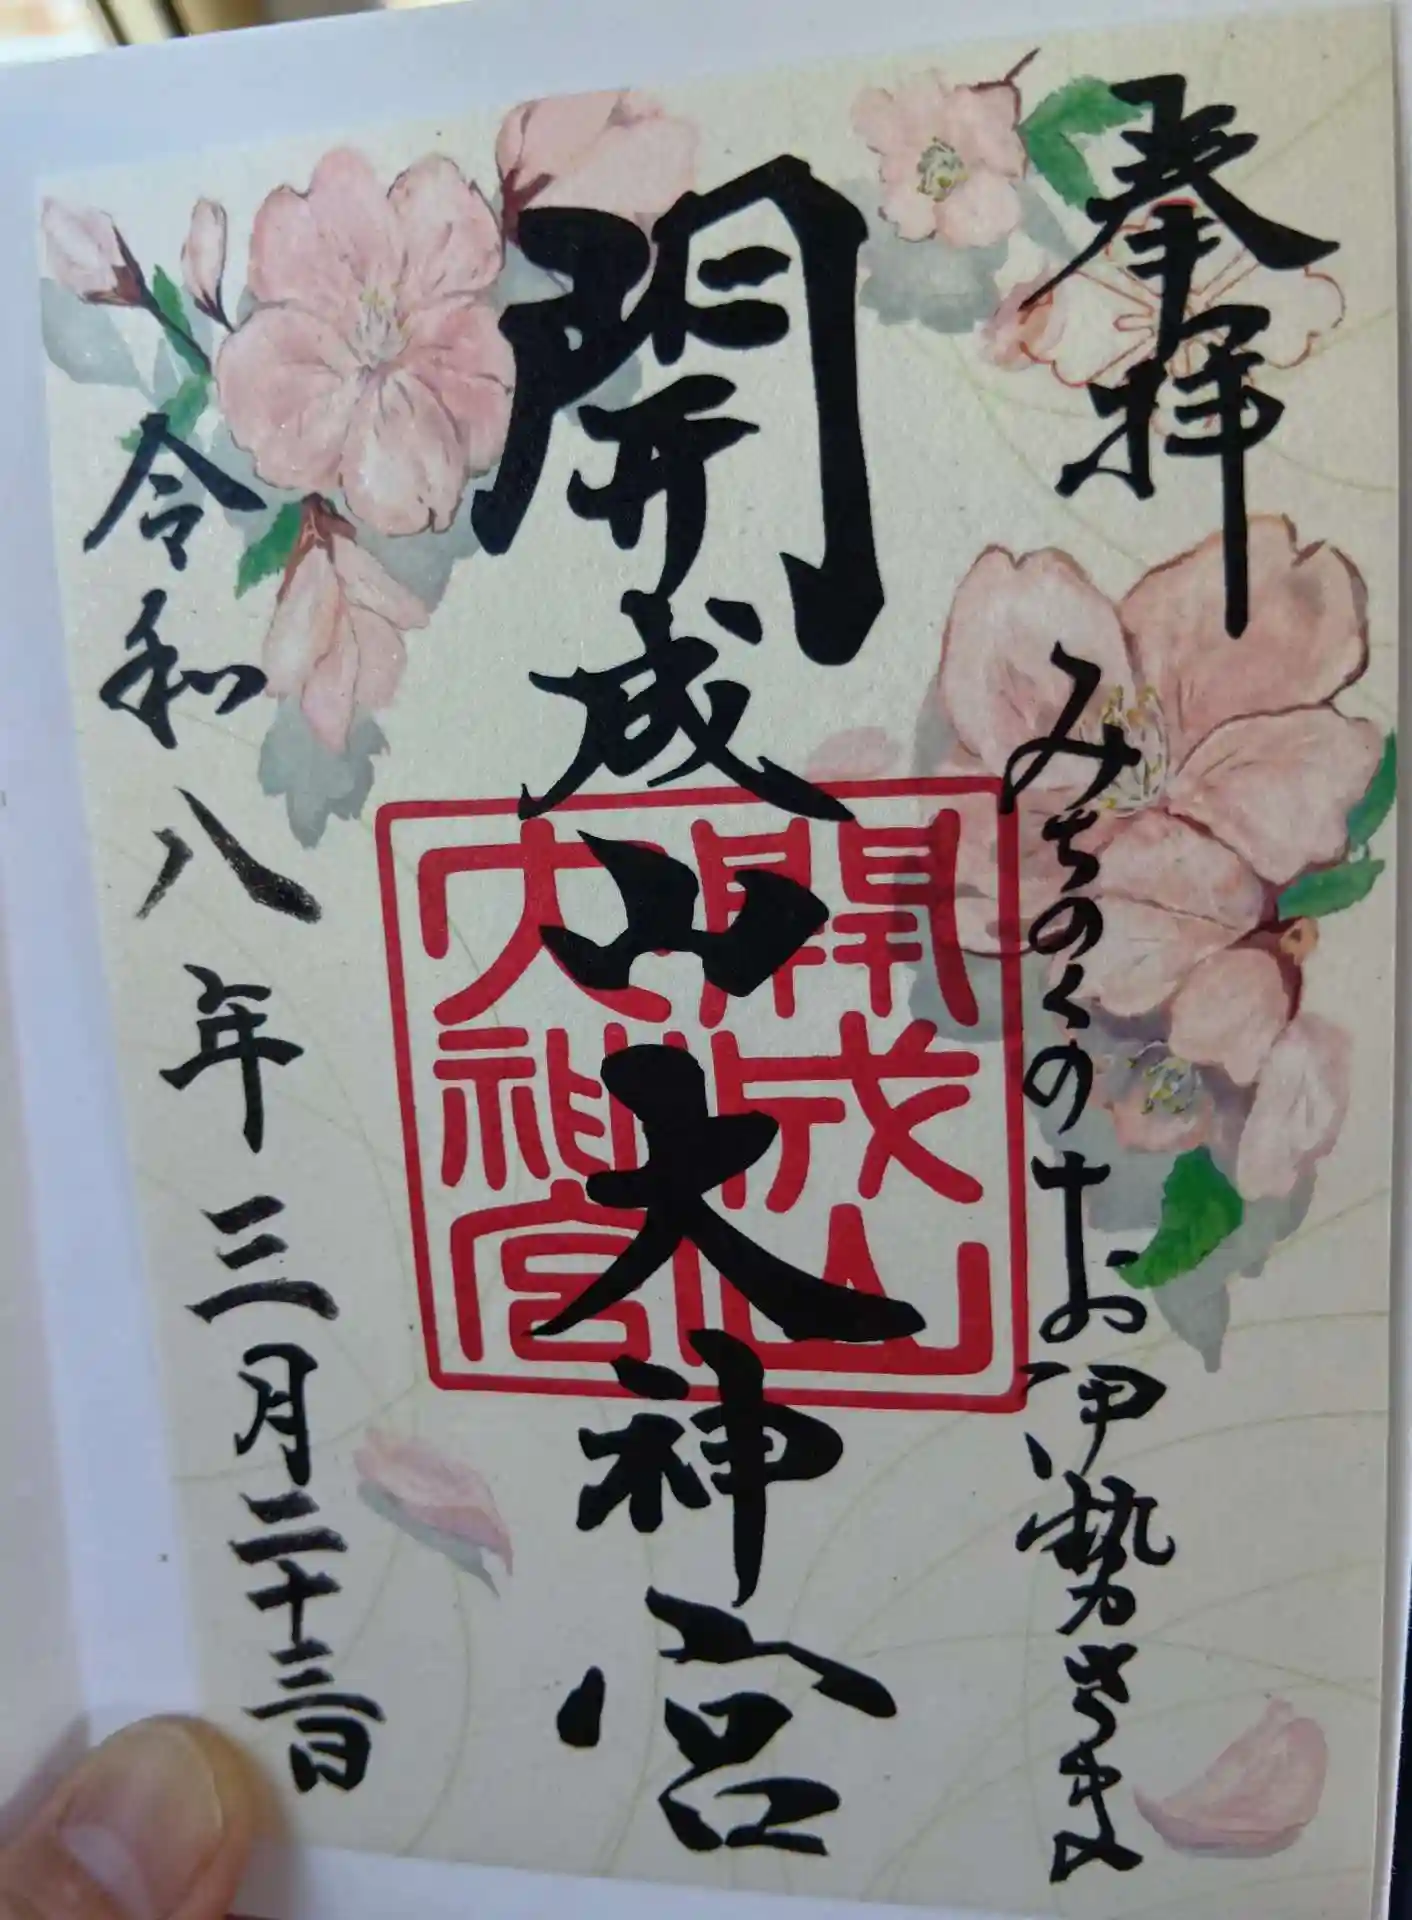 奉拝
みちのくのお伊勢さま
開成山大神宮
開成山
大神宮
令和八年三月二十三日